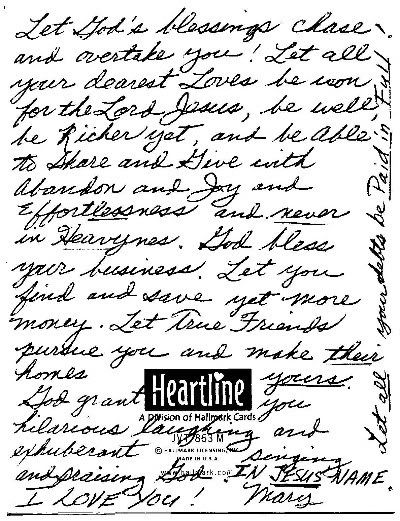 Let God's blessings chase
and overtake you! Let all
your dearest Loves be won
for the Lord Jesus, be well,
be Richer yet, and be Able
to Share and Give with
Abandon and Joy and
Effortlessness and never
in Heavynes. God bless
your business. Let you
find and save yet more
money. Let True Friends
pursue you and make their
homes yours.
God grant you
hilarious laughing and
exhuberant singing
and praising God! IN JESUS NAME.
I LOVE YOU! Mary
Let all your debts be Paid in Full!
Heartline
A Division of Hallmark Cards
JVT 863 M
© HALLMARK LICENSING, INC.
MADE IN U.S.A.
www.hallmark.com